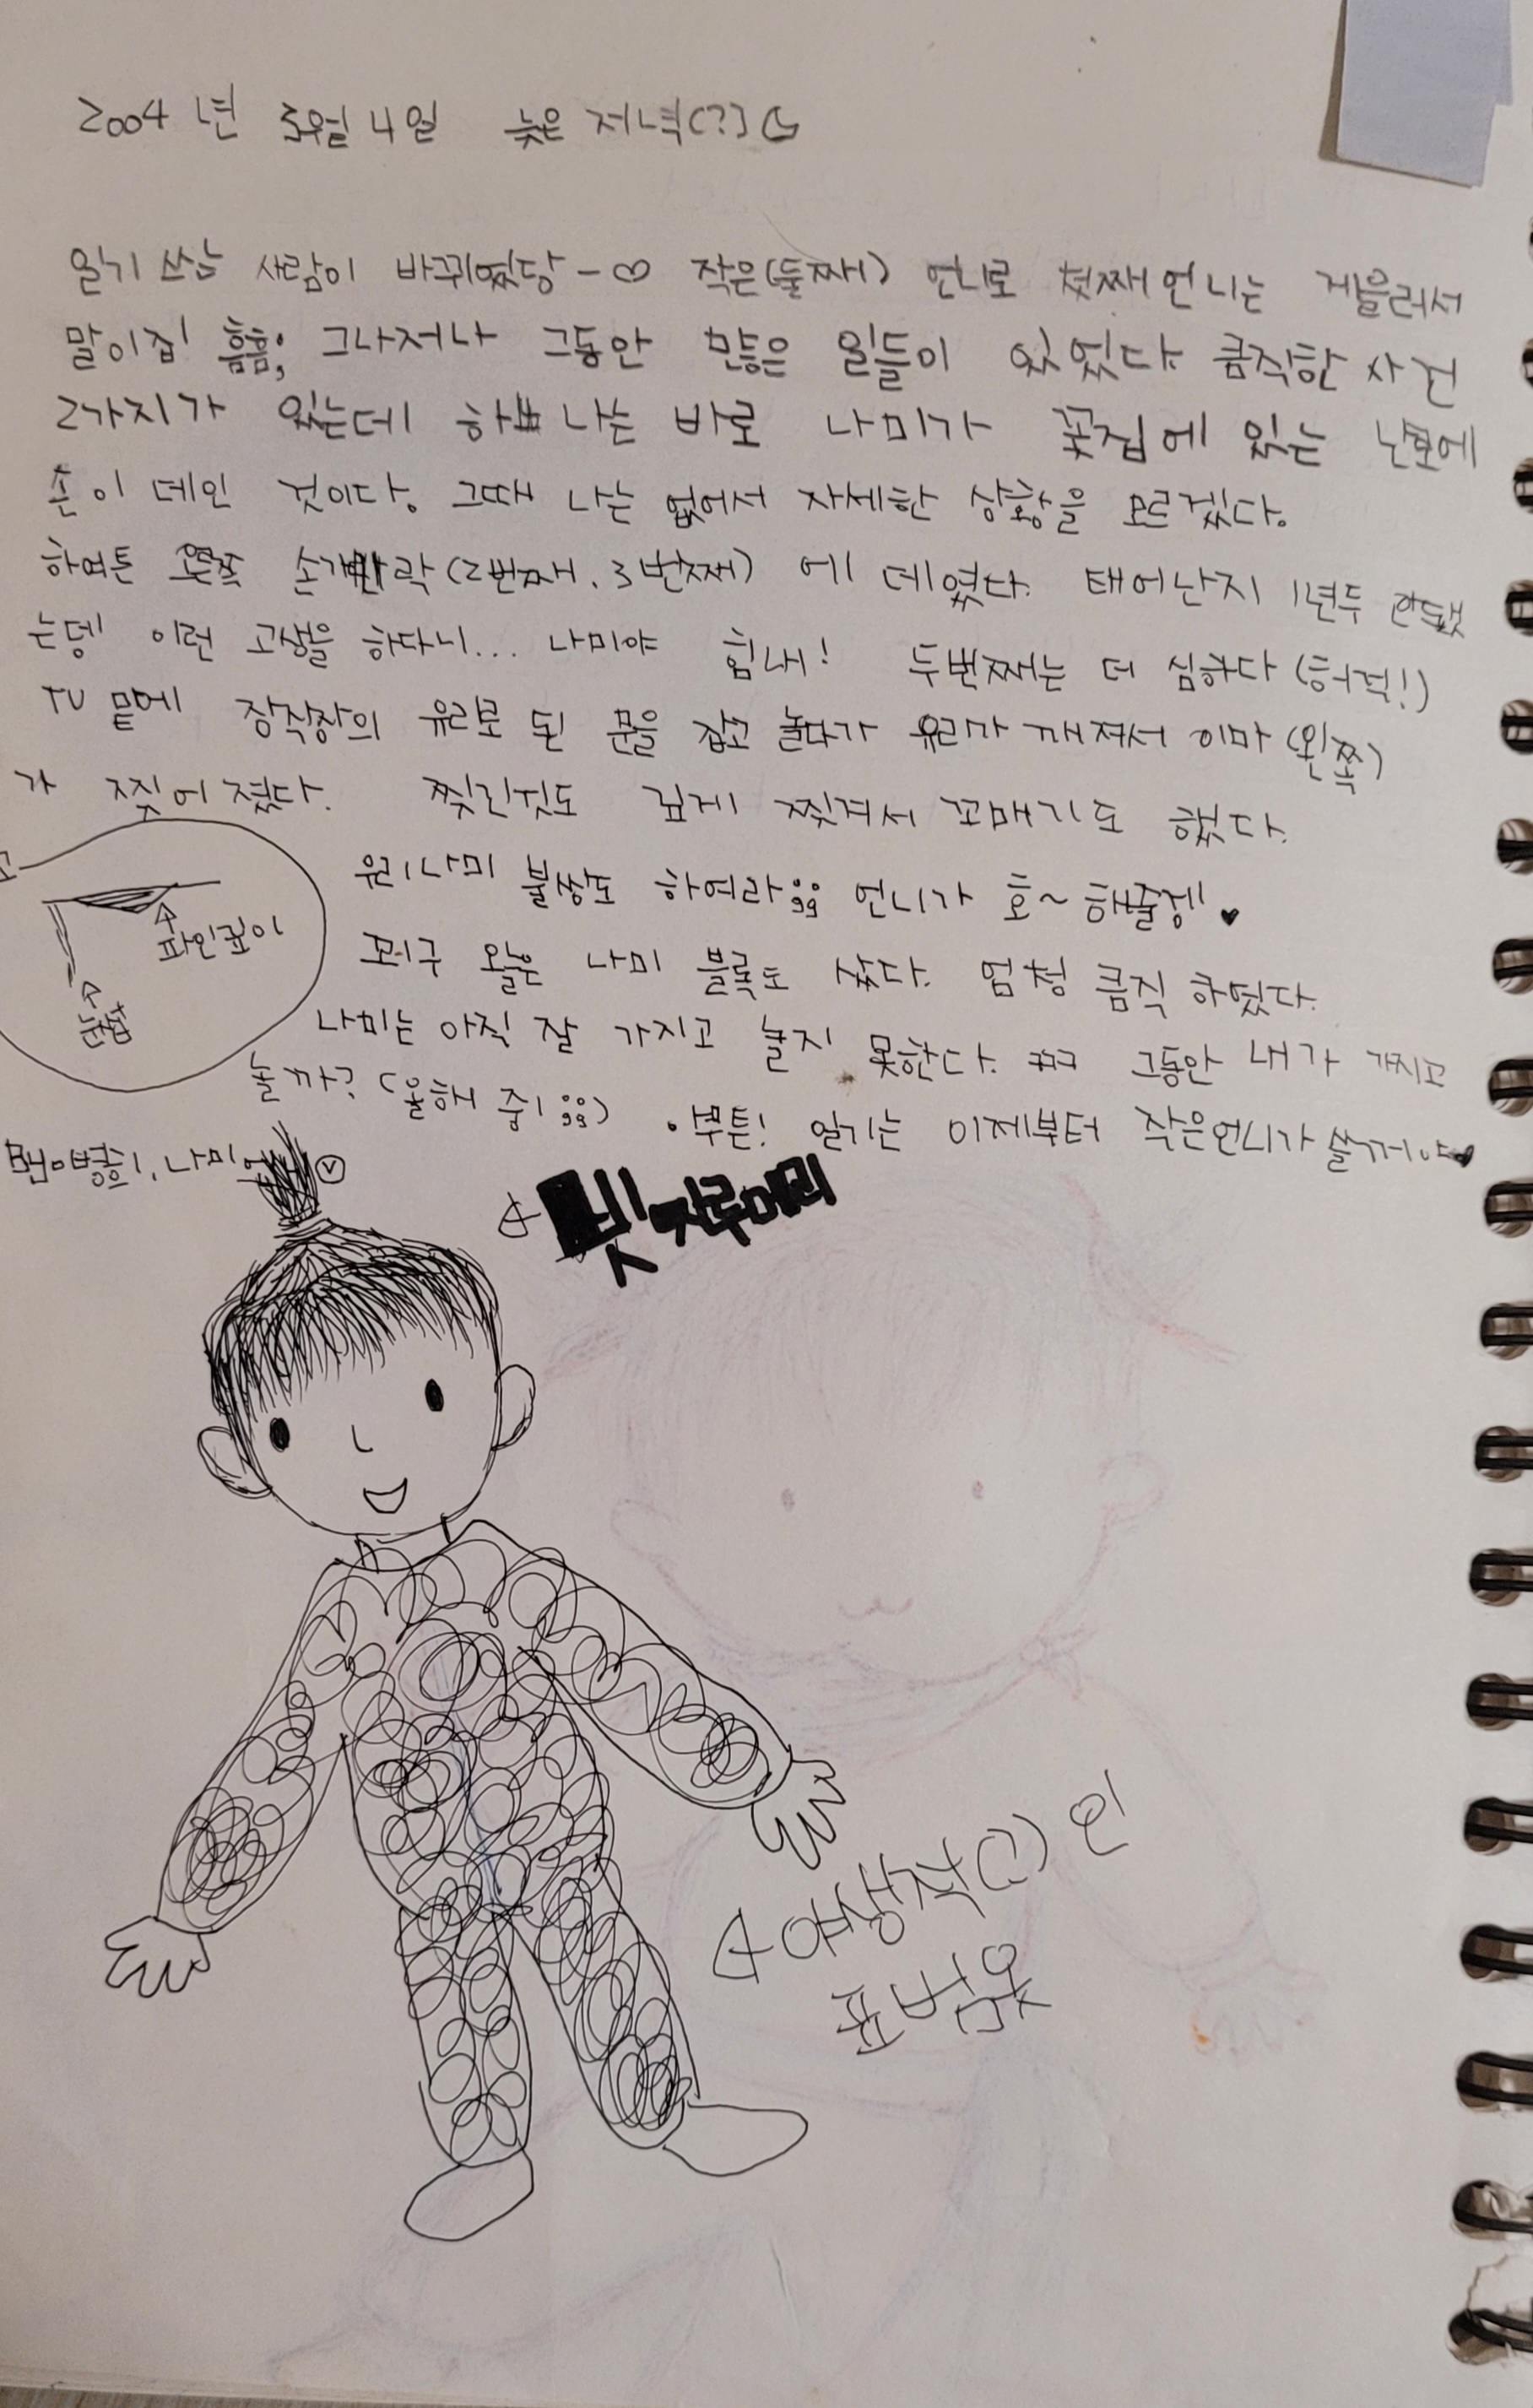 2004년 3월 4일 늦은 저녁(?)
일기 쓰는 사람이 바뀌었당-♡ 작은(둘째) 언니로 첫째언니는 게을러서
말이집! 흠흠; 그나저나 그동안 많은 일들이 있었다 큼직한 사건
2가지가 있는데 하나는 바로 나미가 꽃집에 있는 난로에
손이 데인 것이다. 그때 나는 없어서 자세한 상황을 모르겠다.
하여튼 왼쪽 손가락(2번째, 3번째)에 데였다. 태어난지 1년두 안됐
는뎅 이런 고생을 하다니... 나미야 힘내! 두번째는 더 심하다(허걱!)
TV 밑에 장식장의 유리로 된 문을 잡고 놀다가 유리가 깨져서 이마(왼쪽)
가 찢어졌다. 찢긴것도 깊게 찢겨서 꼬매기도 했다.
우리나미 불쌍도 하여라;; 언니가 호~해줄겡!♥
파인깊이
눈썹
오늘은 나미 블록도 샀다. 엄청 큼직 하였다.
나미는 아직 잘 가지고 놀지 못한다. ㅋㅋ 그동안 내가 가지고
놀까? (올해 중1;;) 부튼! 일기는 이제부터 작은언니가 쓸꺼야♥
빗자루머리
야생적(?)인
표범옷